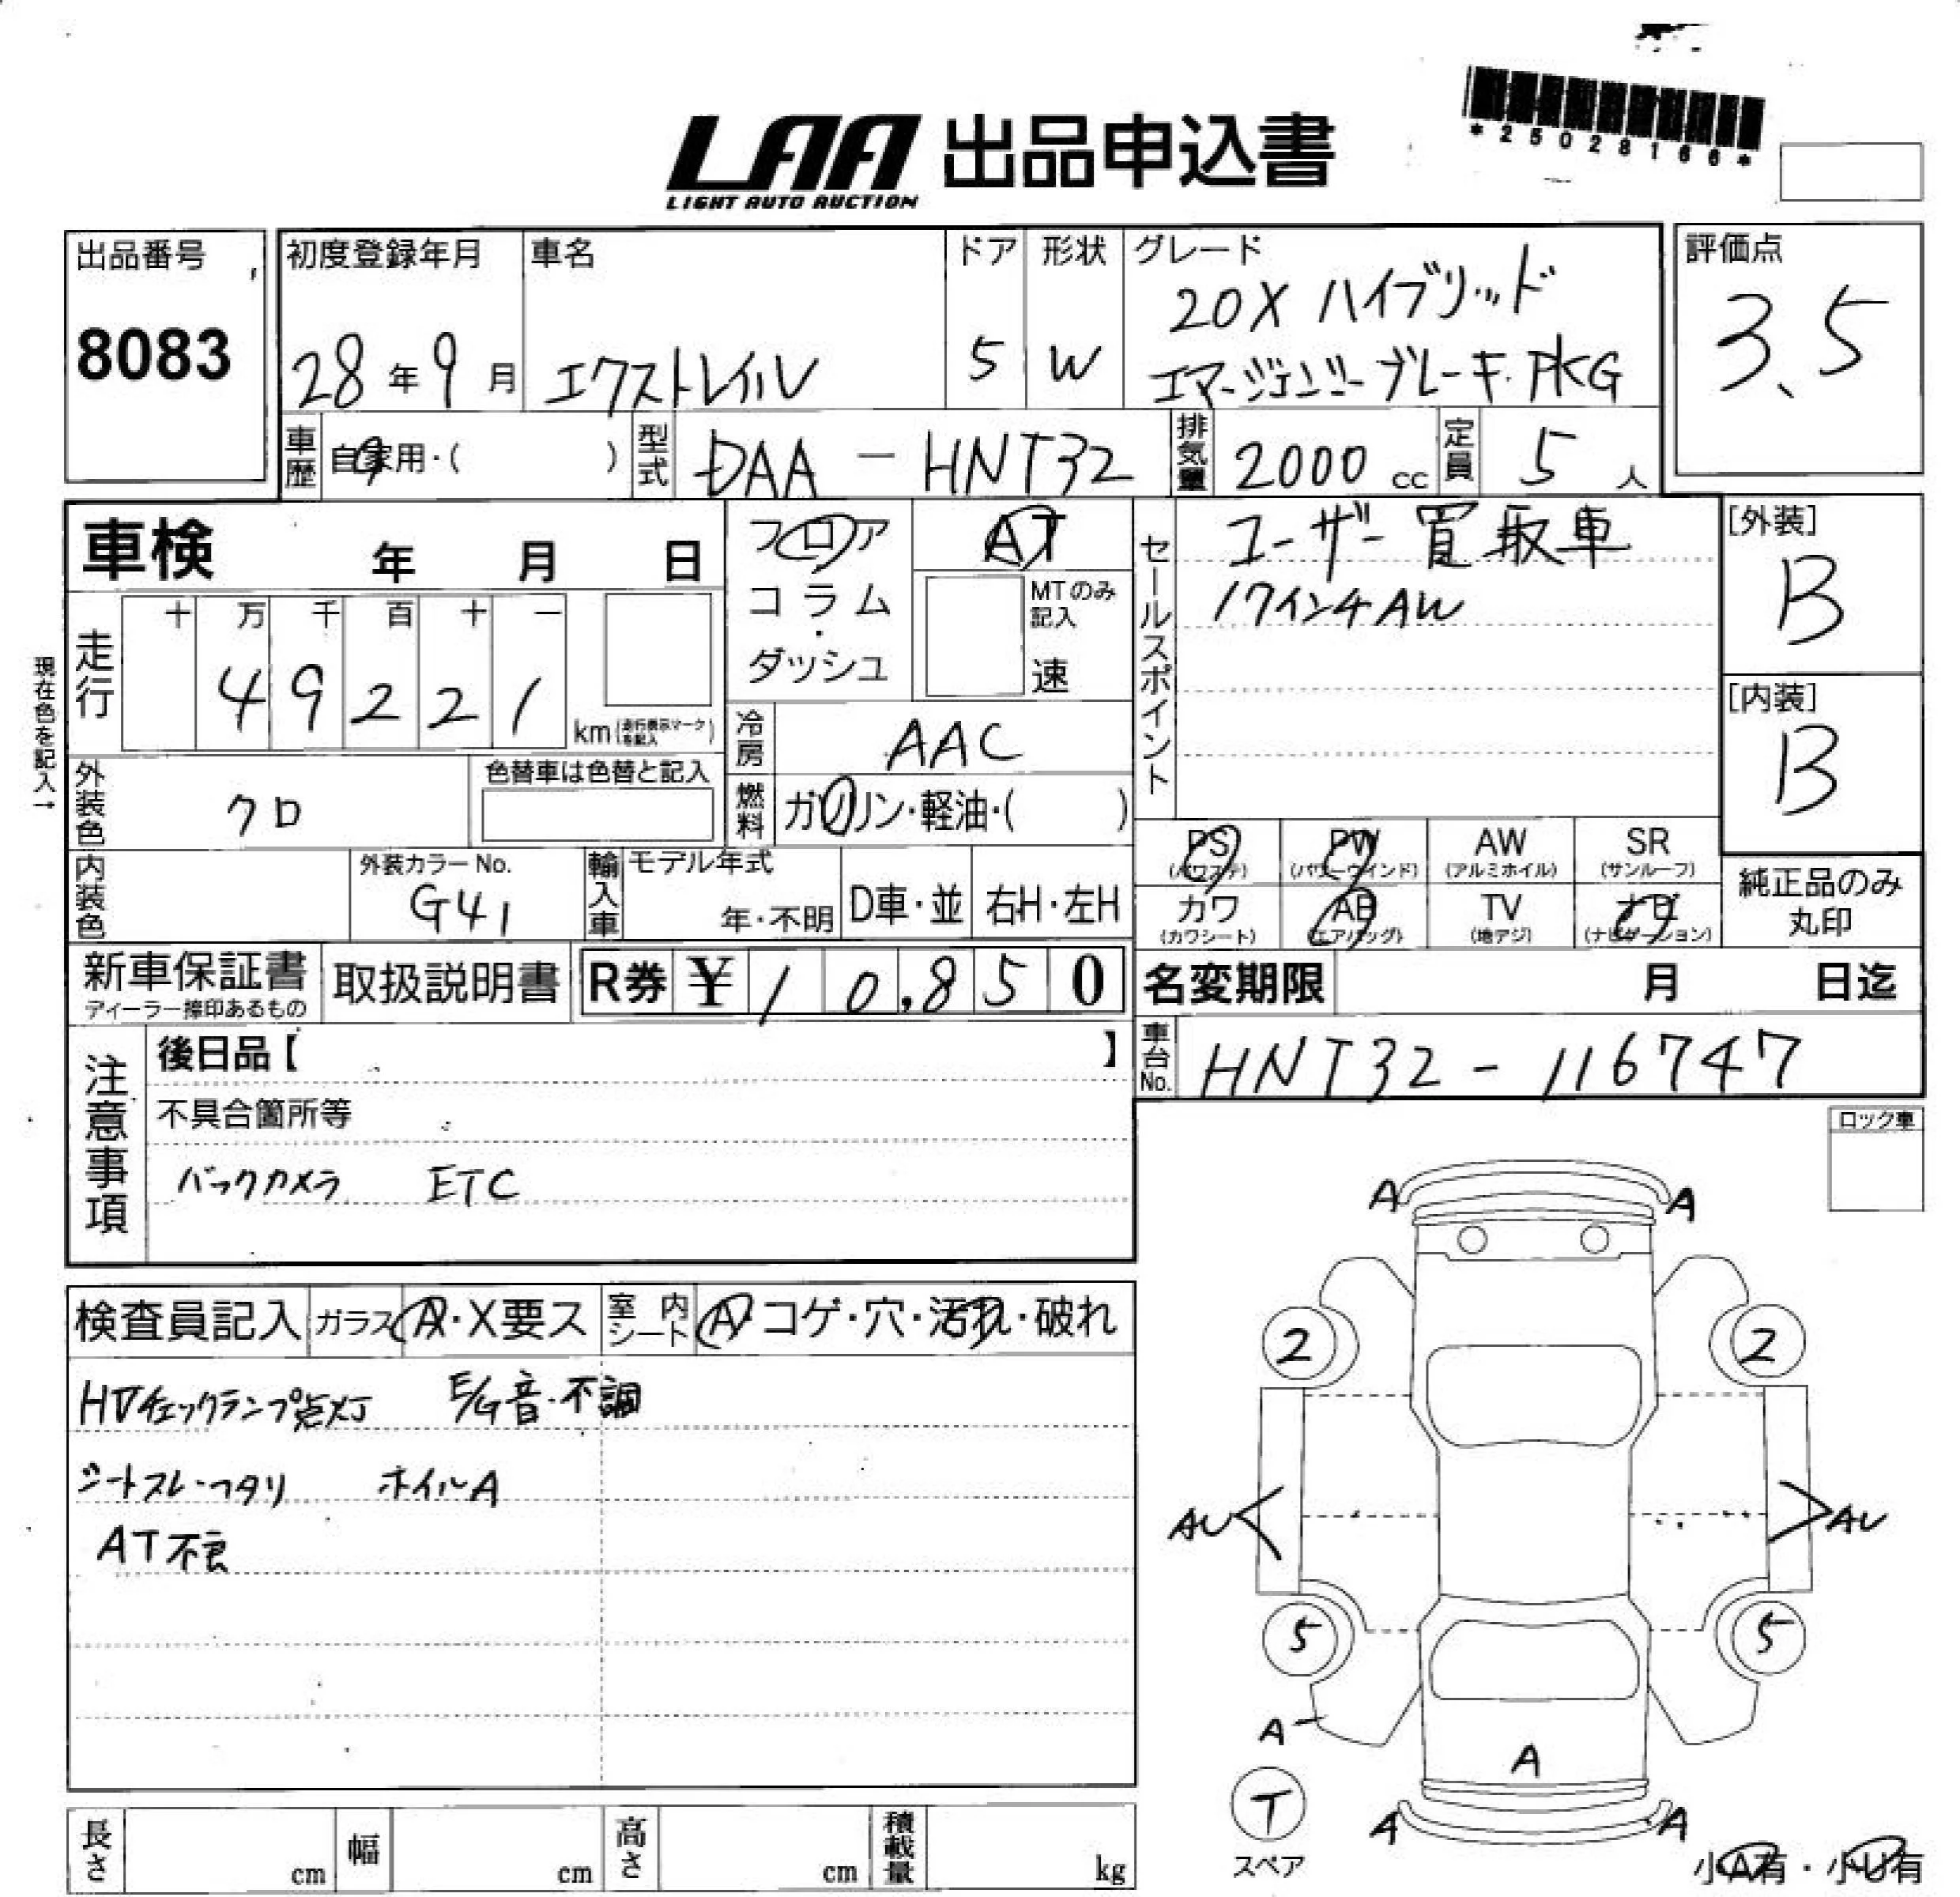 *25028166*
LAA 出品申込書
LIGHT AUTO AUCTION
出品番号
8083
初度登録年月
28年9月
車名
エクストレイル
ドア
5
形状
W
グレード
20X ハイブリッド
エマージェンシーブレーキ PKG
評価点
3.5
車歴 自家用・( )
型式 DAA-HNT32
排気量 2000 cc
定員 5 人
車検 年 月 日
走行
十 万 千 百 十 一
4 9 2 2 1
km(走行表示マークを記入)
現在色を記入→
フロア
コラム
・
ダッシュ
AT
MTのみ
記入
速
冷房 AAC
燃料 ガソリン・軽油・( )
セールスポイント
ユーザー買取車
17インチAW
[外装]
B
[内装]
B
外装色 クロ
色替車は色替と記入
内装色
外装カラーNo.
G41
輸入車
モデル年式
年・不明
D車・並
右H・左H
PS
(パワステ)
PW
(パワーウインド)
AW
(アルミホイル)
SR
(サンルーフ)
カワ
(カワシート)
AB
(エアバッグ)
TV
(地デジ)
ナビ
(ナビゲーション)
純正品のみ
丸印
新車保証書
ディーラー捺印あるもの
取扱説明書
R券 ¥10,850
名変期限 月 日迄
車台No. HNT32-116747
注意事項
後日品【 】
不具合箇所等
バックカメラ ETC
ロック車
検査員記入
ガラス A・X要ス
室内シート A・コゲ・穴・汚れ・破れ
HVチェックランプ点灯 E/G音・不調
シートスレ・ヘタリ ホイルA
AT不良
A A
2 2
AU AU
5 5
A
A
T
スペア
A A
小A有・小U有
長さ cm
幅 cm
高さ cm
積載量 kg